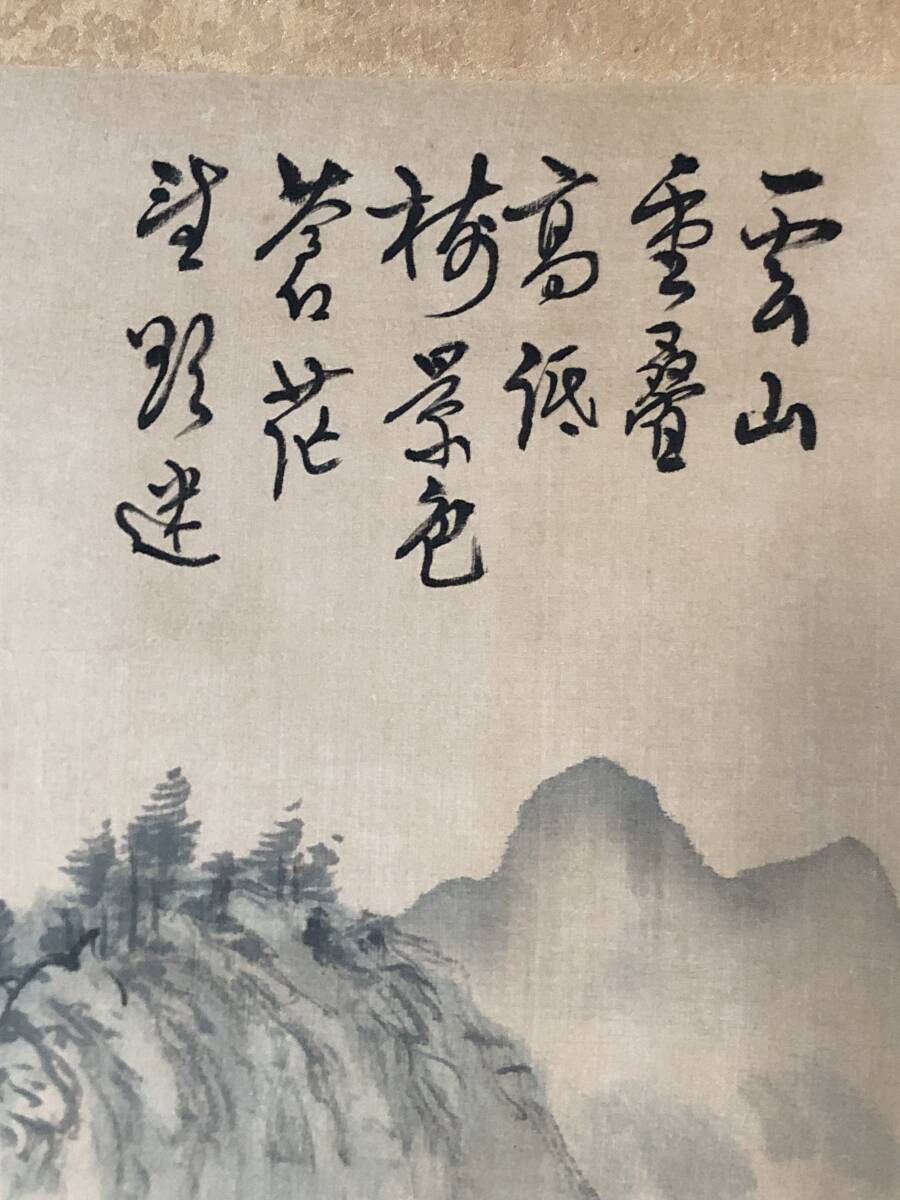 雲山
重疊
高低
樹景色
蒼茫
望眼迷